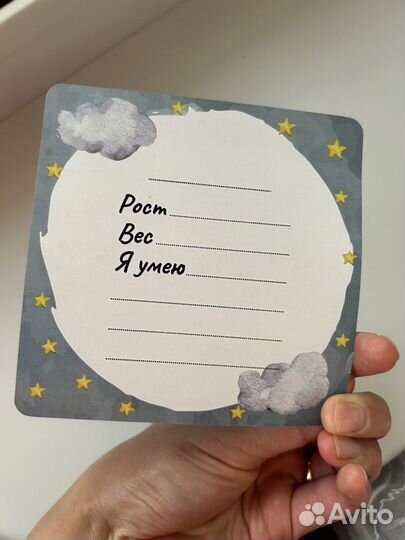 Рост
Вес
Я умею
Avito